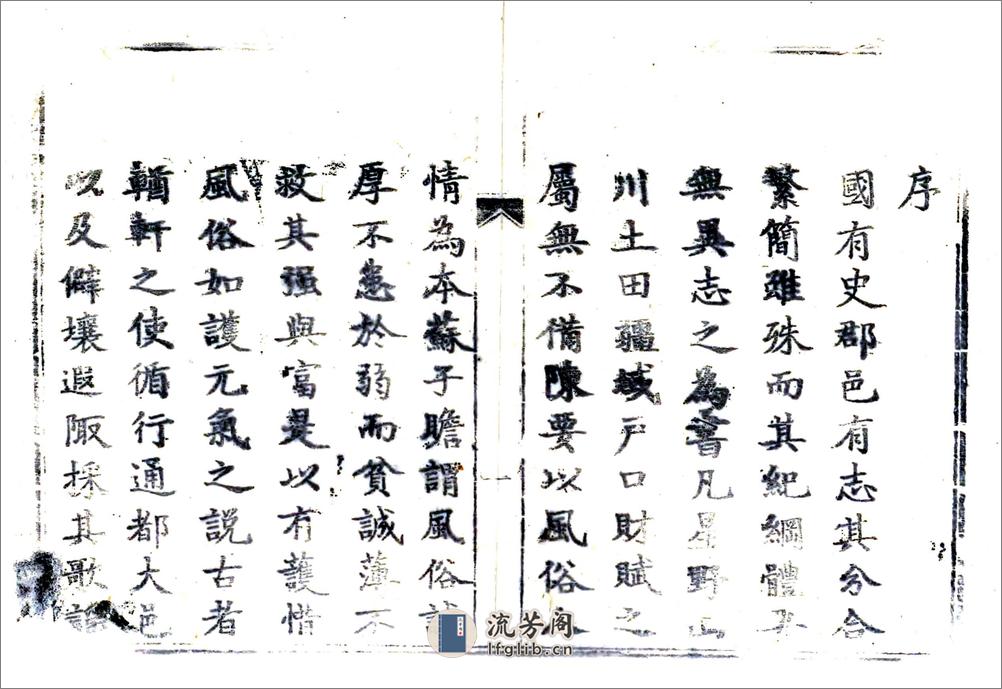 序
國有史郡邑有志其分合
繁簡雖殊而其紀綱體要
無異志之為書凡星野山
川土田疆域戶口財賦之
屬無不備陳要以風俗人
一
情為本蘇子瞻謂風俗誠
厚不患於弱而貧誠薄不
救其强與富是以有護惜
風俗如護元氣之說古者
輶軒之使循行通都大邑
以及僻壤遐陬採其歌謠
流芳阁
lfglib.cn